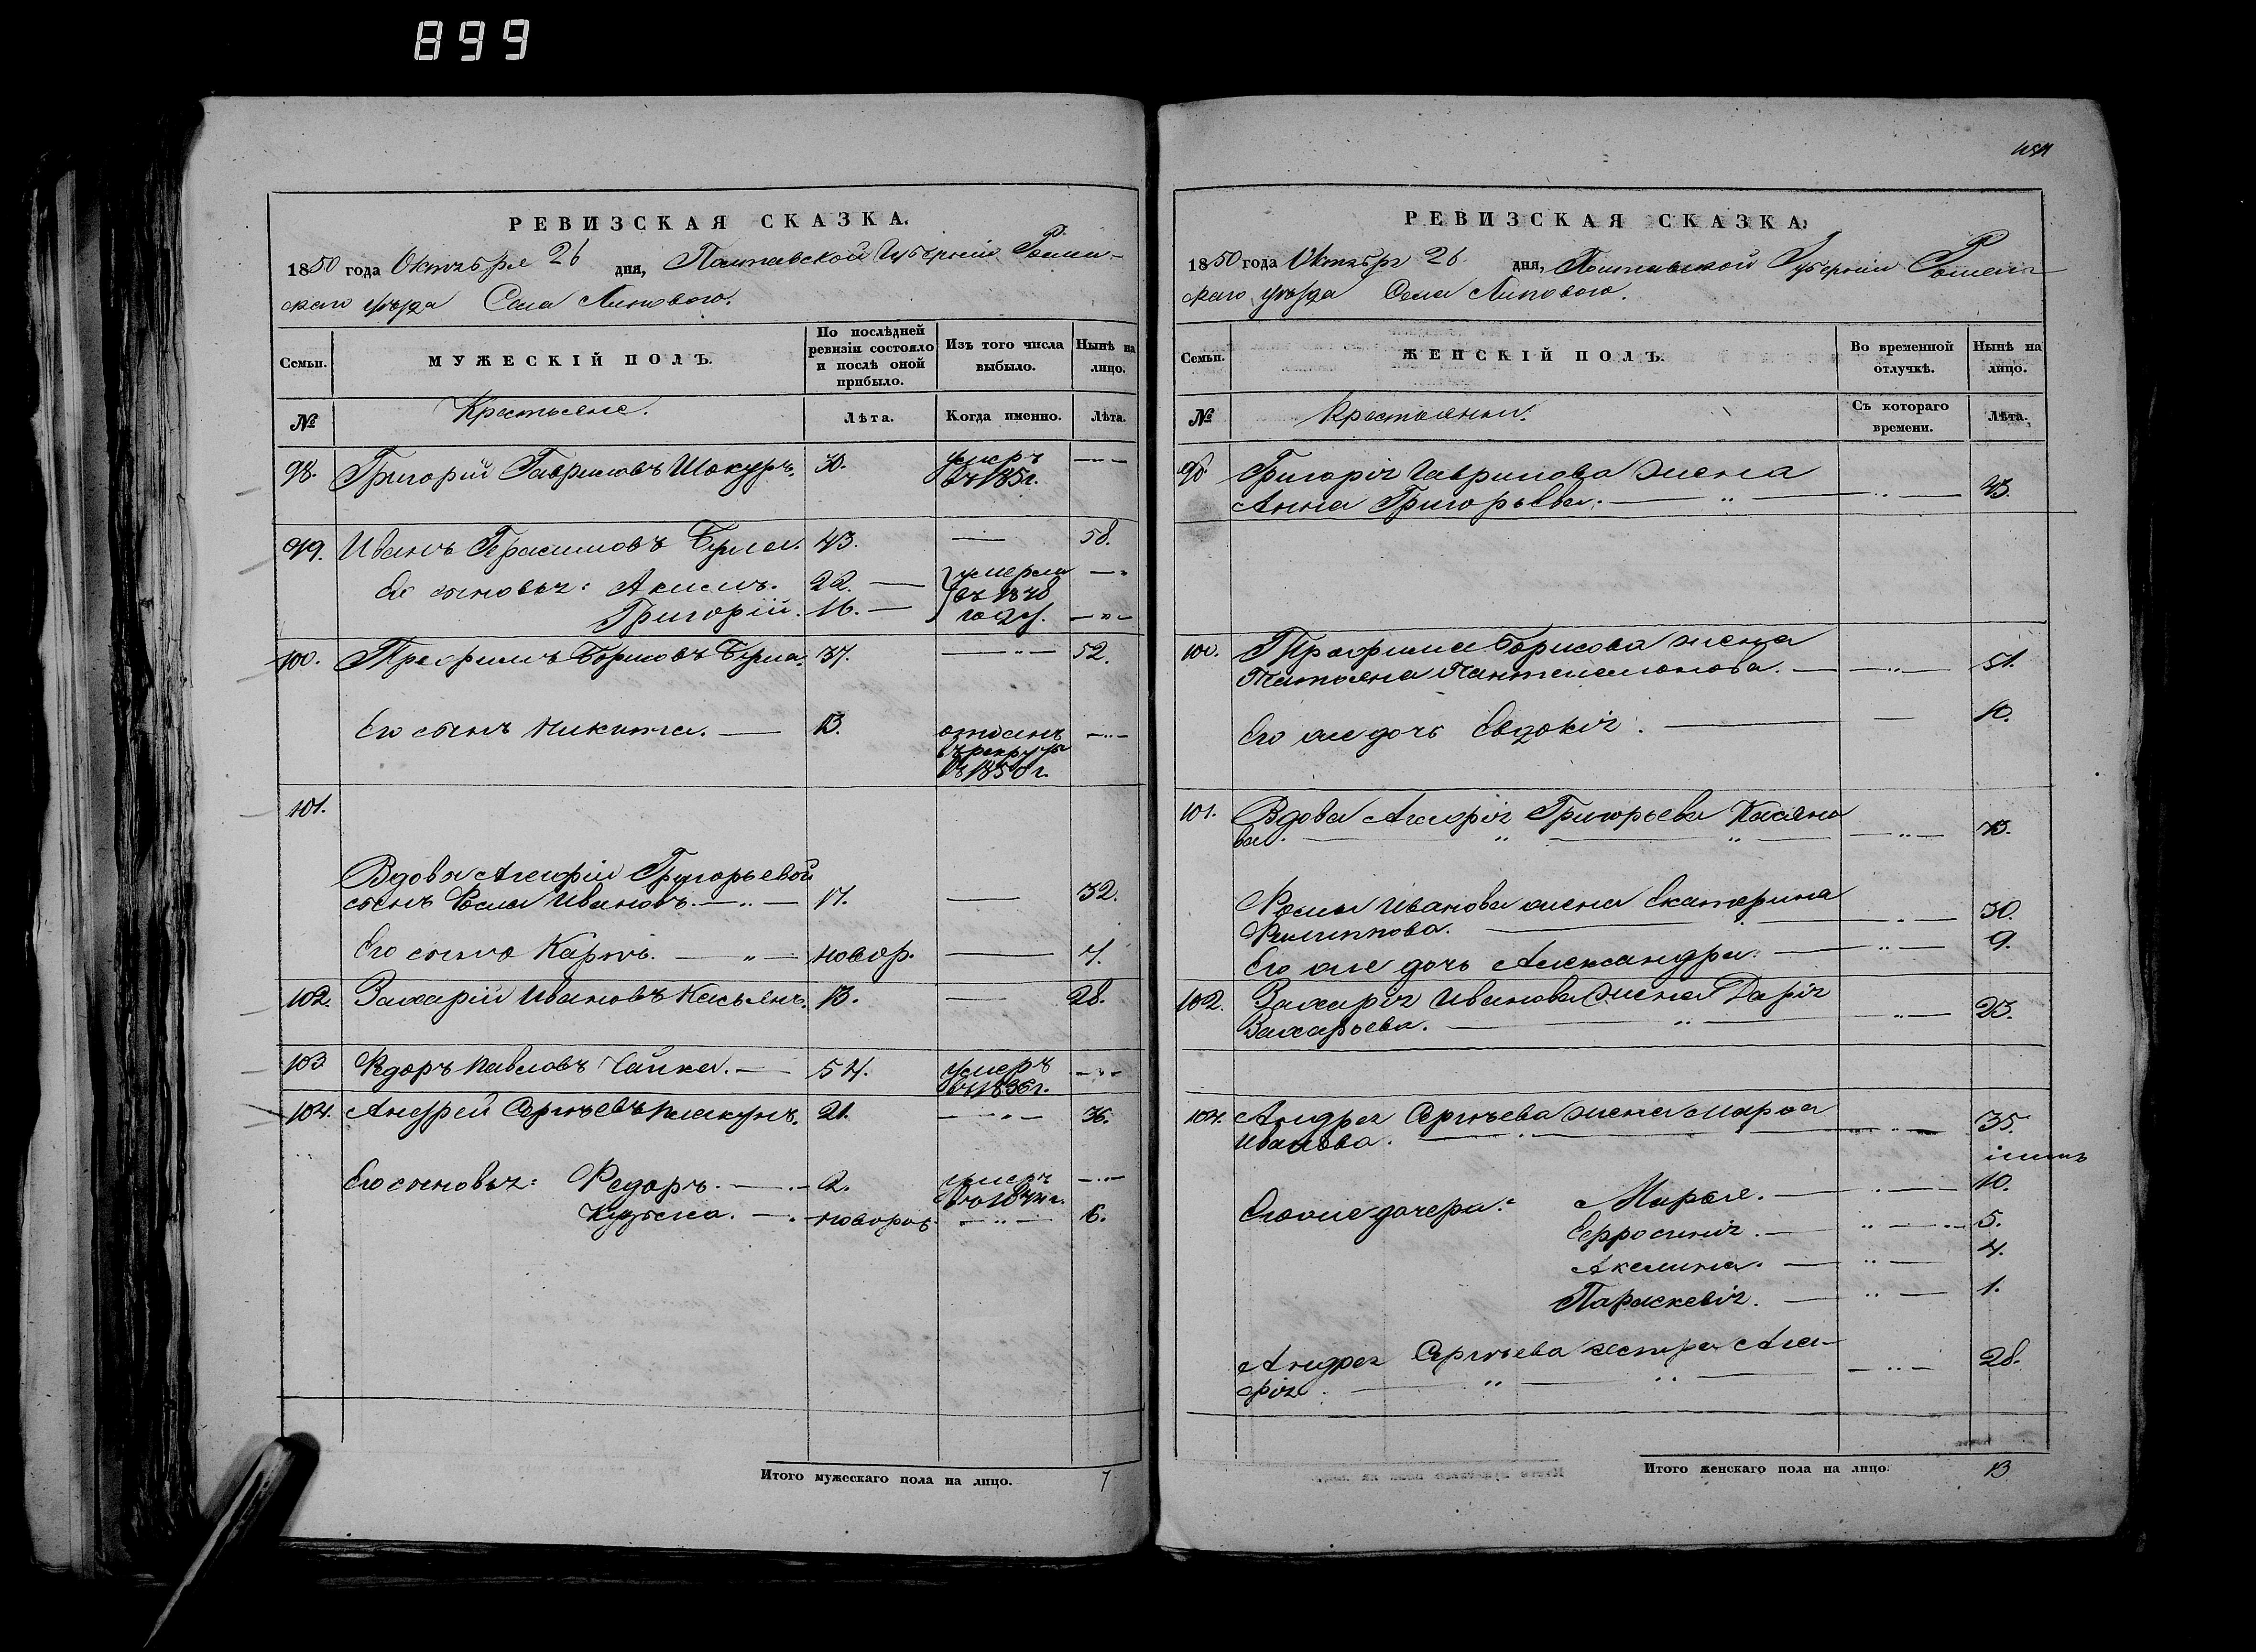 899
РЕВИЗСКАЯ СКАЗКА.
1850 года Октября 26 дня, Полтавской Губерніи Ромен-
скаго уѣзда Села Липоваго.
Семьи.
МУЖЕСКІЙ ПОЛЪ.
По послѣдней ревизіи состояло и послѣ оной прибыло.
Изъ того числа выбыло.
Нынѣ на лицо.
№
Крестьяне.
Лѣта.
Когда именно.
Лѣта.
98. Григорій Гавриловъ 30. умеръ
99. Иванъ Герасимовъ Бурла. 43. 58.
Его сыновья: Акимъ. 22. умерли
въ 1848
Григорій. 16. году.
100. Трофимъ Борисовъ Бурла. 37. 52.
Его сынъ Никита. 13. отданъ
въ рекруты
въ 1850 г.
101.
Вдовы Агафіи Григорьевой
сынъ Фома Ивановъ. 17. 32.
Его сынъ Карпъ. новор. 7.
102. Захарій Ивановъ Касьянъ. 13. 28.
103 Ѳедоръ Павловъ Чайка. 54. умеръ
въ 1836 г.
104. Андрей Сергѣевъ Плакунъ. 21. 36.
Его сыновья: Ѳедоръ. 2. умеръ
въ 1844 г.
Кузьма. новорож. 6.
Итого мужескаго пола на лицо. 7
РЕВИЗСКАЯ СКАЗКА.
1850 года Октября 26 дня, Полтавской Губерніи Ромен-
скаго уѣзда Села Липоваго.
Семьи.
ЖЕНСКІЙ ПОЛЪ.
Во временной отлучкѣ.
Нынѣ на лицо.
№
Крестьянки.
Съ котораго времени.
Лѣта.
98 Григорія Гаврилова жена
Анна Григорьева. 43.
100. Трофима Борисова жена
Татьяна Пантелемонова. 51.
Его же дочь Евдокія. 10.
101. Вдова Агафія Григорьева Касяно
ва. 73.
Фомы Иванова жена Екатерина
Филиппова. 30.
Его же дочь Александра. 9.
102. Захарія Иванова жена Дарія
Захарьева. 23.
104. Андрея Сергѣева жена Марфа
Иванова. 35.
Его же дочери: Марья. 10.
Ефросинія. 5.
Акилина. 4.
Параскевія. 1.
Андрея Сергѣева сестра Ага-
фія. 28.
Итого женскаго пола на лицо. 13